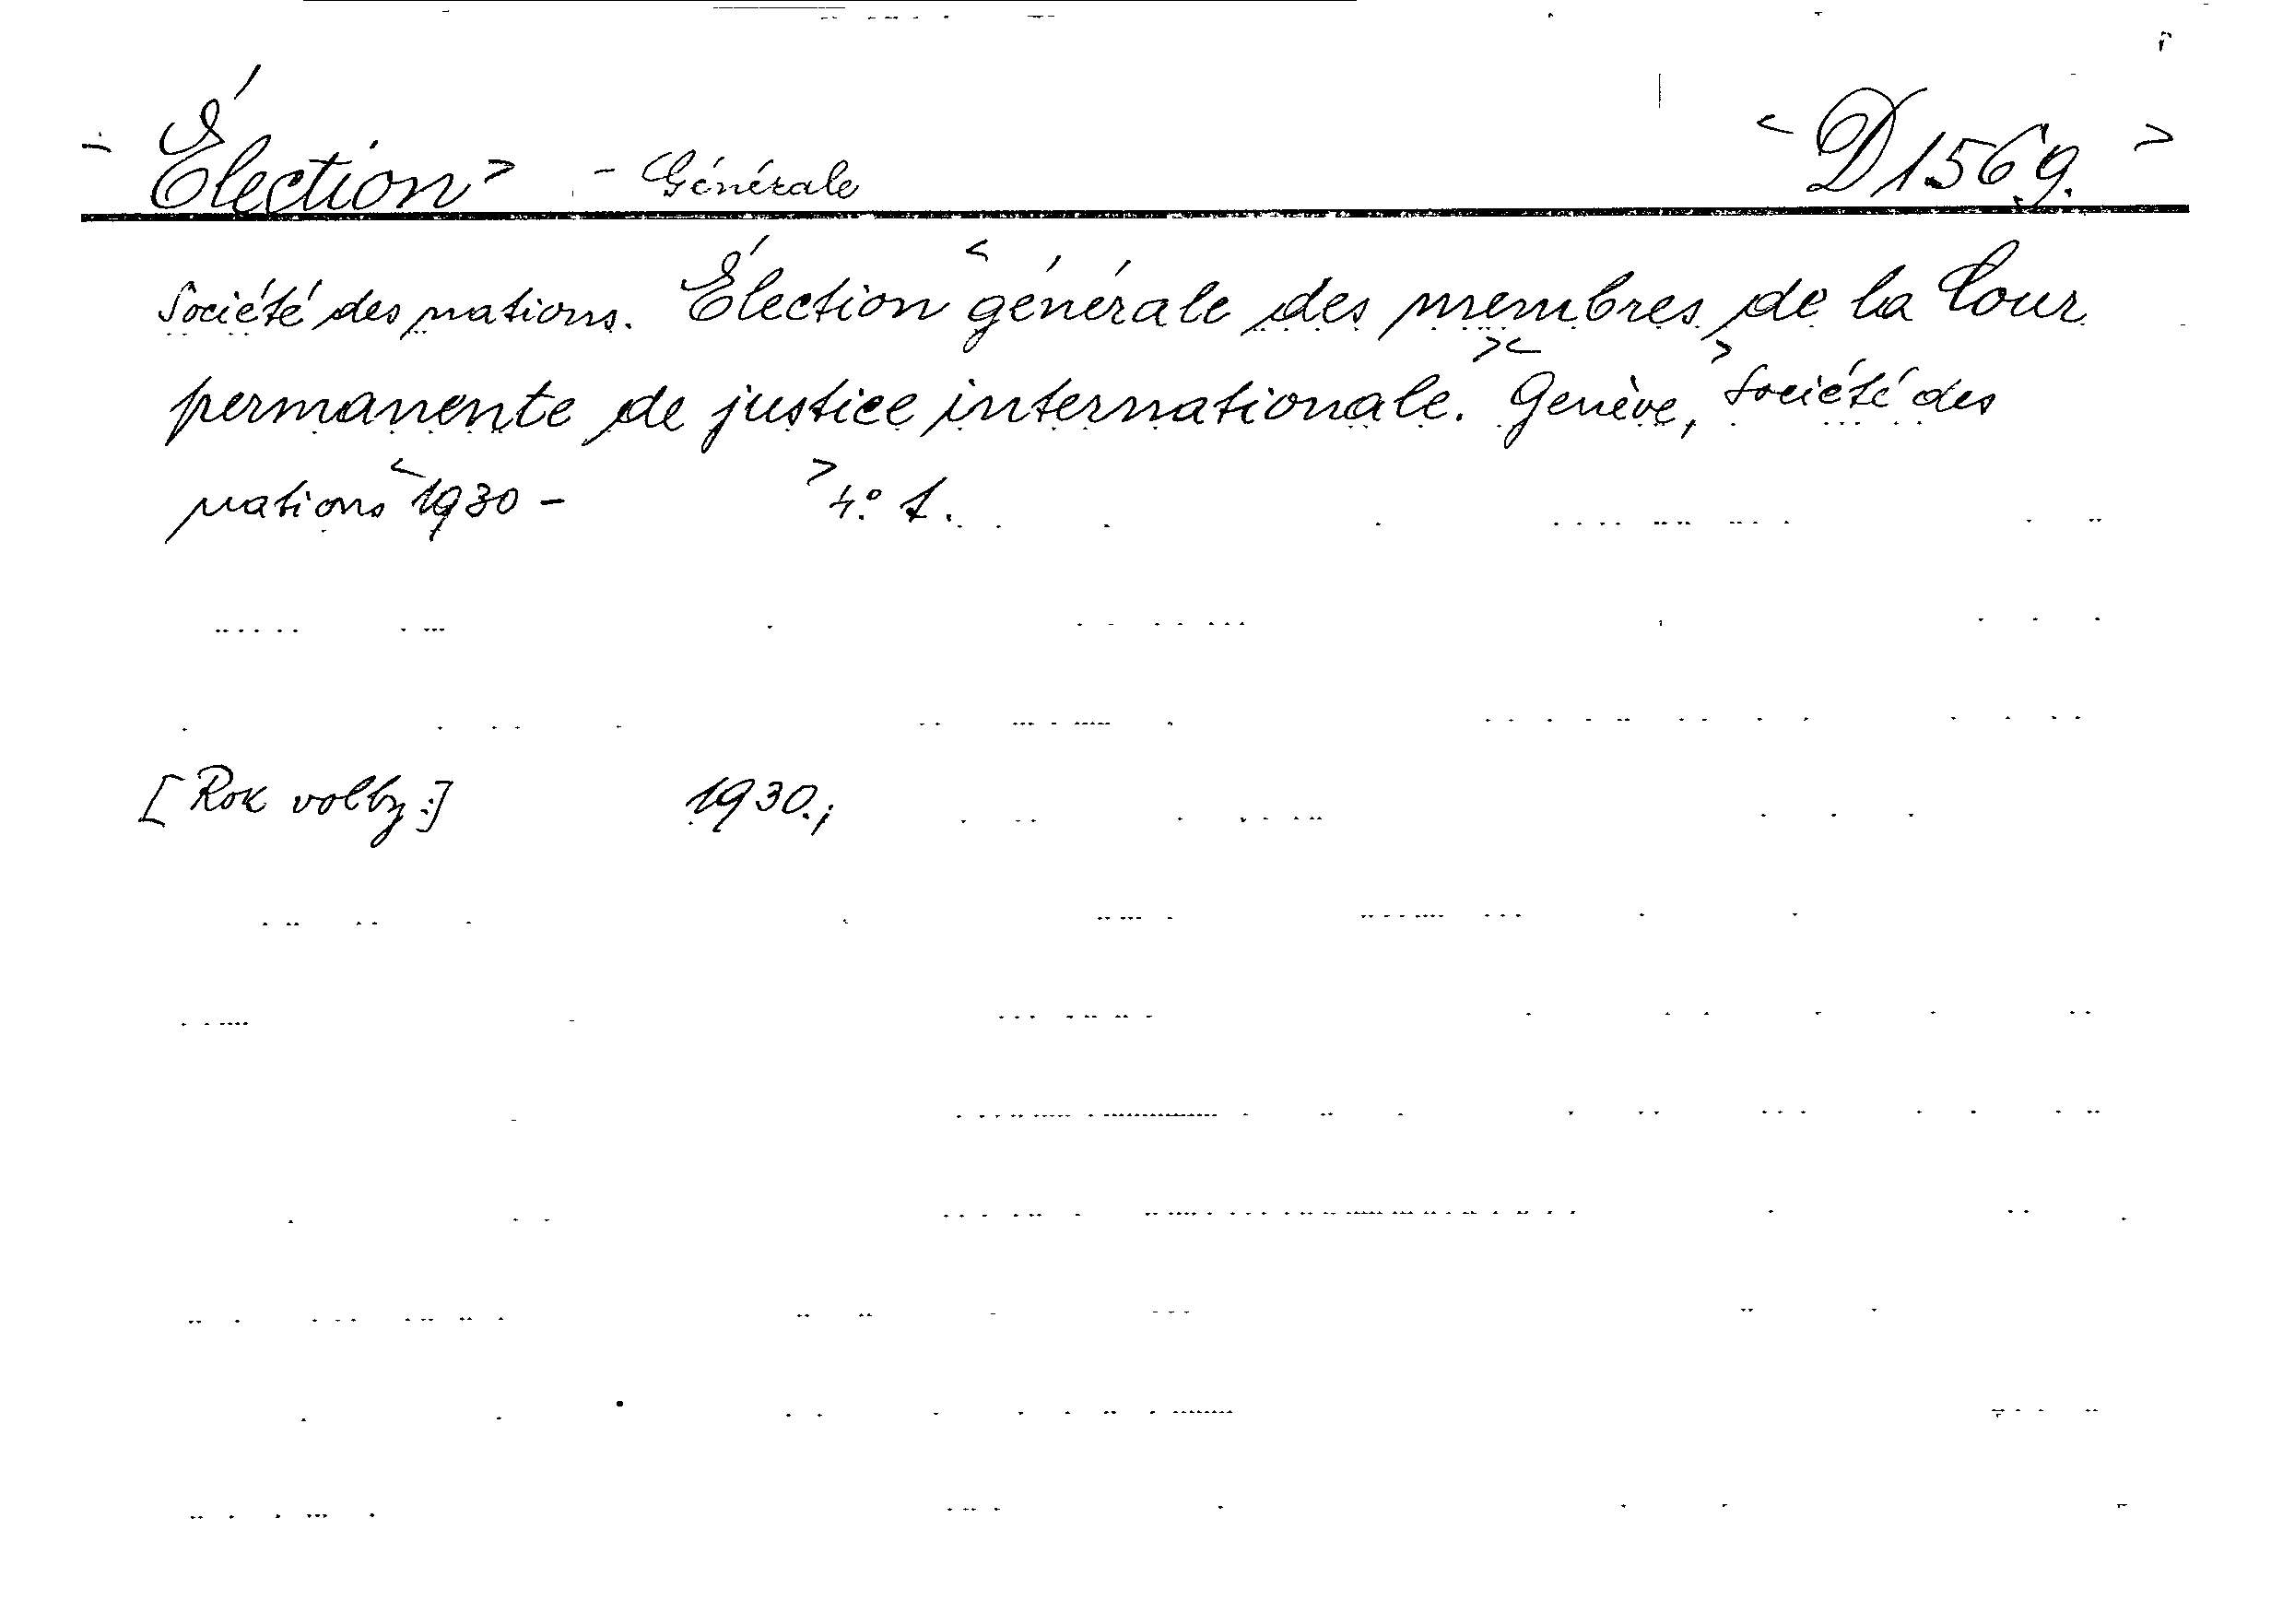 Élection - Générale D 1569.
Société des nations. Élection générale des membres de la Cour
permanente de justice internationale. Genève, Société des
nations 1930 - 4.° 1.
[Rok volby:] 1930.;